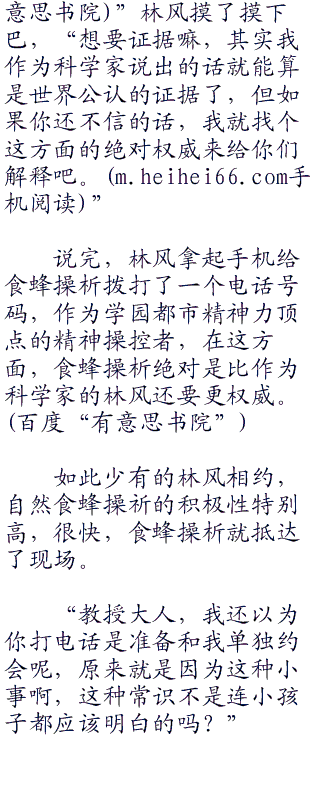 意思书院)”林风摸了摸下
巴，“想要证据嘛，其实我
作为科学家说出的话就能算
是世界公认的证据了，但如
果你还不信的话，我就找个
这方面的绝对权威来给你们
解释吧。(m.heihei66.com手
机阅读)”
说完，林风拿起手机给
食蜂操析拨打了一个电话号
码，作为学园都市精神力顶
点的精神操控者，在这方
面，食蜂操析绝对是比作为
科学家的林风还要更权威。
(百度“有意思书院”)
如此少有的林风相约，
自然食蜂操祈的积极性特别
高，很快，食蜂操析就抵达
了现场。
“教授大人，我还以为
你打电话是准备和我单独约
会呢，原来就是因为这种小
事啊，这种常识不是连小孩
子都应该明白的吗？”